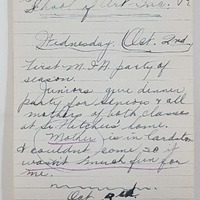 School of Art Inc.
Wednesday, Oct. 2nd.
First M.I.A. party of
season.
Juniors give dinner
party for seniors & all
mothers of both classes
at Sr. Hutches' home.
Mother is in Cardston
& couldn't come so it
wasn't much fun for
me.
Oct. 3rd.